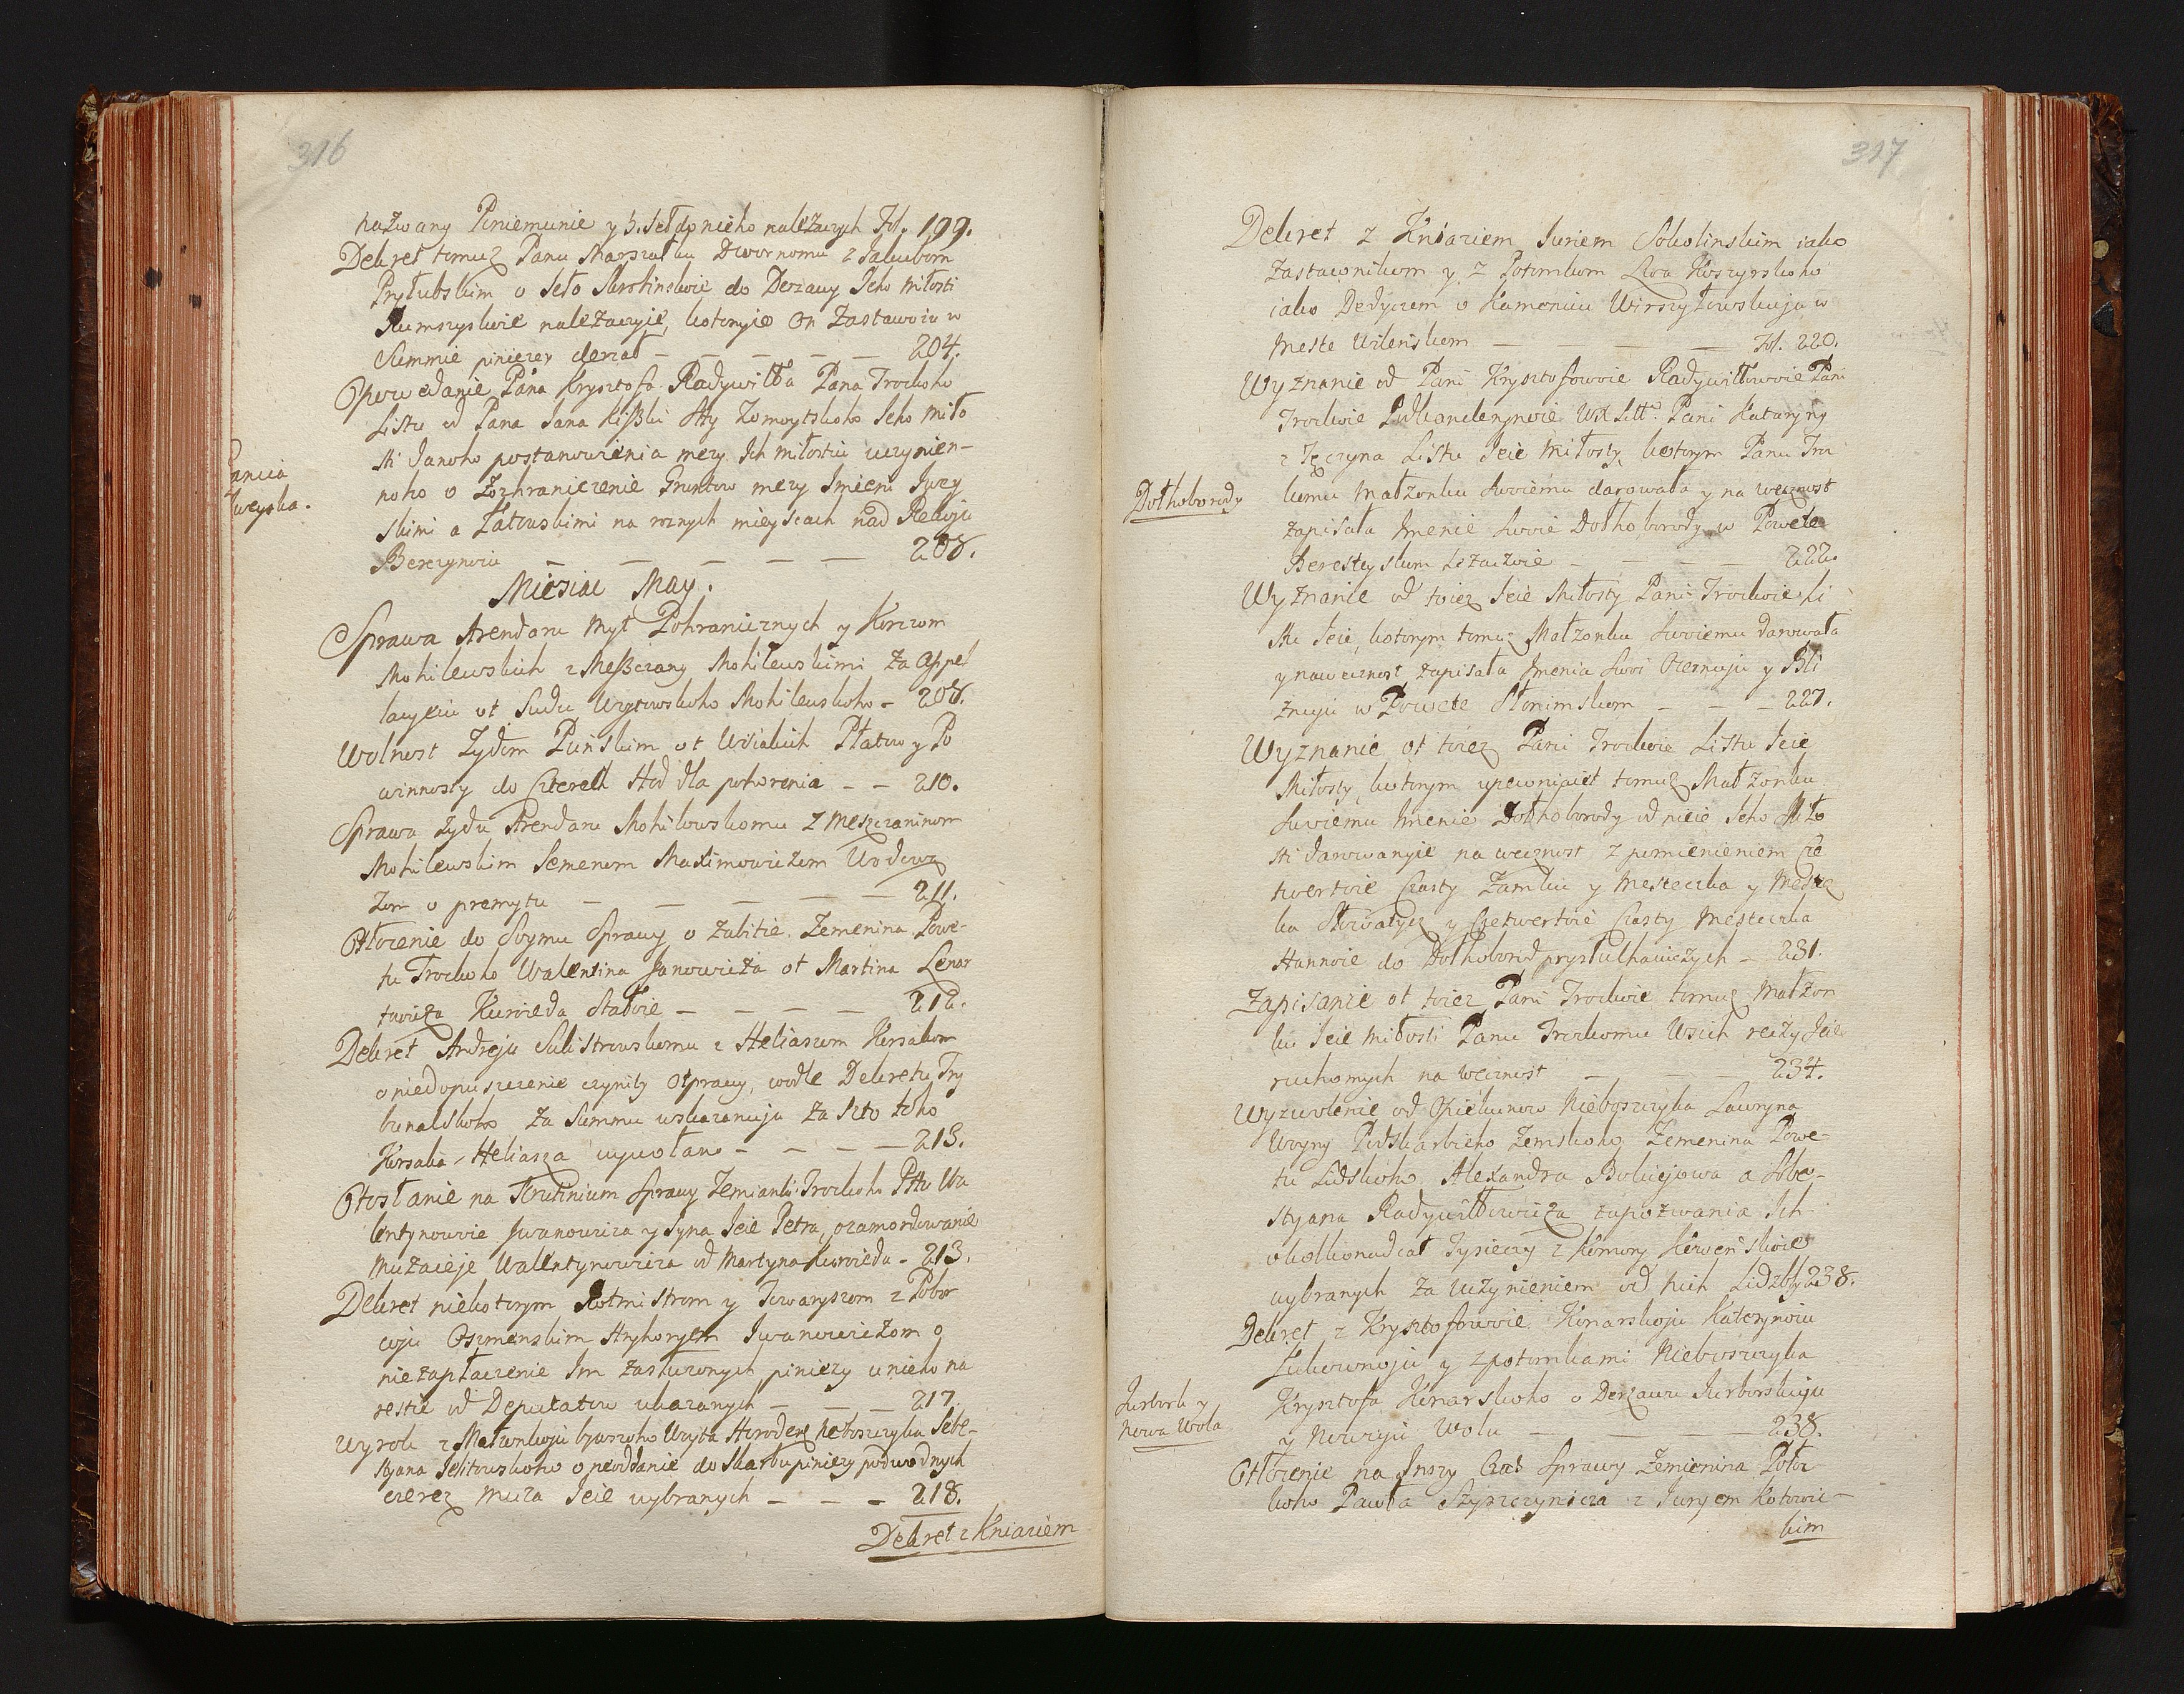 316
nazwany Poniemunie y 3. Seł do nieho należaczych Fol. 199.
Dekret tomuż Panu Marszałku Dwornomu z Jakubom
Prytubskim o Seło Skrobinskoie do Derżawy Jeho Miłosti
Rumszyskoie należaczyie, kotoryie On Zastawoiu w
Summie piniezey derżał — — — — 204.
Opowedanie Pana Krysztofa Radywiłła Pana Trockoho
Listu od Pana Jana Kißki Stty Żomoytskoho Jeho Miło
sti Danoho postanowienia mezy Ich miłostiu uczynien-
noho o Rozhraniczenie Gruntow mezy Imieni
skimi a Zatouskimi na roznych mieyscach nad Rekoju
Berezynoiu — — — — — 208.
Miesiac May.
Sprawa Arendaru Myt Pohranicznych y Korczom
Mohilewskich z Meßczany Mohilewskimi za Appel
lacyeiu ot Sudu Uryewskoho Mohilewskoho - 208.
Wolnost Żydom Puńskim ot Usiakich Płatow y Po
winnosty do Czterech Hod dla pohorenia — — 210.
Sprawa Żydu Arendaru Mohilowskomu z Meszczaninom
Mohilewskim Semenom Maximowiczom
żom o premytu — — — — — 211.
Otłożenie do Soymu Sprawy o Zabitie Zemenina Powe-
tu Trockoho Walentina Janowicza ot Martina Lenar
towicza Kurowieda Stałoie — — — — 212.
Dekret Andreju Sulistrowskomu z Heliaszom Korsakom
o niedopuszczenie czynity Otprawy, wodle Dekretu Try
bunalskoho za Summu uskazanuju za szto toho
Korsaka Heliasza wywołano — — — — 213.
Otosłanie na Scrutinium Sprawy Zemianki Trockoho Ptu Wa
lentynowoie Iwanowicza y Syna Jeie Petra, o zamordowanie
Muża ieje Walentynowicza od Martyna Kurowieda - 213.
Dekret niekotorym Rotmistrom y Towaryszom z Pobor
coju Oszmenskim Hryhorym Iwanowiczom o
niezapłaczenie Im zasłużonych piniezy u nieho na
restie od Deputatow ukazanych — — — 217.
Wyrok z Małzonkoju bywszoho Woyta Horoden. Neboszczyka Sebe-
styana Jelitowskoho o neoddanie do Skarbu piniezy podwodnych
czerez Muża Jeie wybranych — — — 218.
Dekret z Kniaziem
317
Dekret z Kniaziem Juriem Sokolinskim iako
Zastawnikom y z Potomkom Lwa Koszyrskoho
iako Dedyczem o Kamenicu Wirszyłowskuju w
Meste Wilenskom — — — — Fol. 220.
Wyznanie od Pani Krysztofowoie Radywiłłowoie Pani
Trockoie Podkanclerynoie WX Litt. Pani Kataryny
z Tęczyna Listu Jeie Miłosty, kotorym Panu Troc
komu Małżonku Swoiemu darowała y na wecznost
Dołhoborody
zapisała Imenie Swoie Dołhoborody w Powete
Beresteyskom Leżaczoie — — — 222.
Wyznanie od toiez Jeie Miłosty Pani Trockoie Li
stu Jeie, kotorym tomuż Małżonku Swoiemu Darowała
y na wecznost zapisała Imenia Swoi Czernuju y Bli
znuju w Powete Słonimskom — — — 227.
Wyznanie ot toiez Pani Trockoie Listu Jeie
Miłosty, kotorym upewniaiet tomuż Małżonku
Swoiemu Imenie Dołhoborody od nieie Jeho Miło
sti Darowanyie na wecznost z pomienieniem Cze
twertoie Czasty Zamku y Mesteczka y Mestcz
ka Sławatycz y Czetwertoie Czasty Mesteczka
Hannoie do Dołhoborod prysłuchaiuczych — 231.
Zapisanie ot toiez Pani Trockoie tomuż Małżon
ku Jeie Miłosti Panu Trockomu Wsich reczy Jeie
ruchomych na wecznost — — — 234.
Wyzwolenie od Opiekunow Nieboszczyka Lawryna
Woyny Podskarbieho Zemskoho Zemenina Powe-
tu Lidskoho Alexandra Bokiejowa a Sebe-
styana Radywiłłowicza zapozwania Ich
o kolkonadcat Tysieczy z Komory Kowenskoie
wybranych za uczynieniem od Nich Lidzby 238.
Dekret z Krysztofowoie Konarskoju Katerynoiu
Hukownoju y z potomkami Nieboszczyka
Jurbork y
Nowa Wola
Krysztofa Konarskoho o Derżawu Jurborskuju
y Nowuju Wolu — — — — 238.
Otłożenie na Inszy Czas Sprawy Zemienina Połoc
koho Pawła Szyszczynicza z Juryem Kotowic-
kim